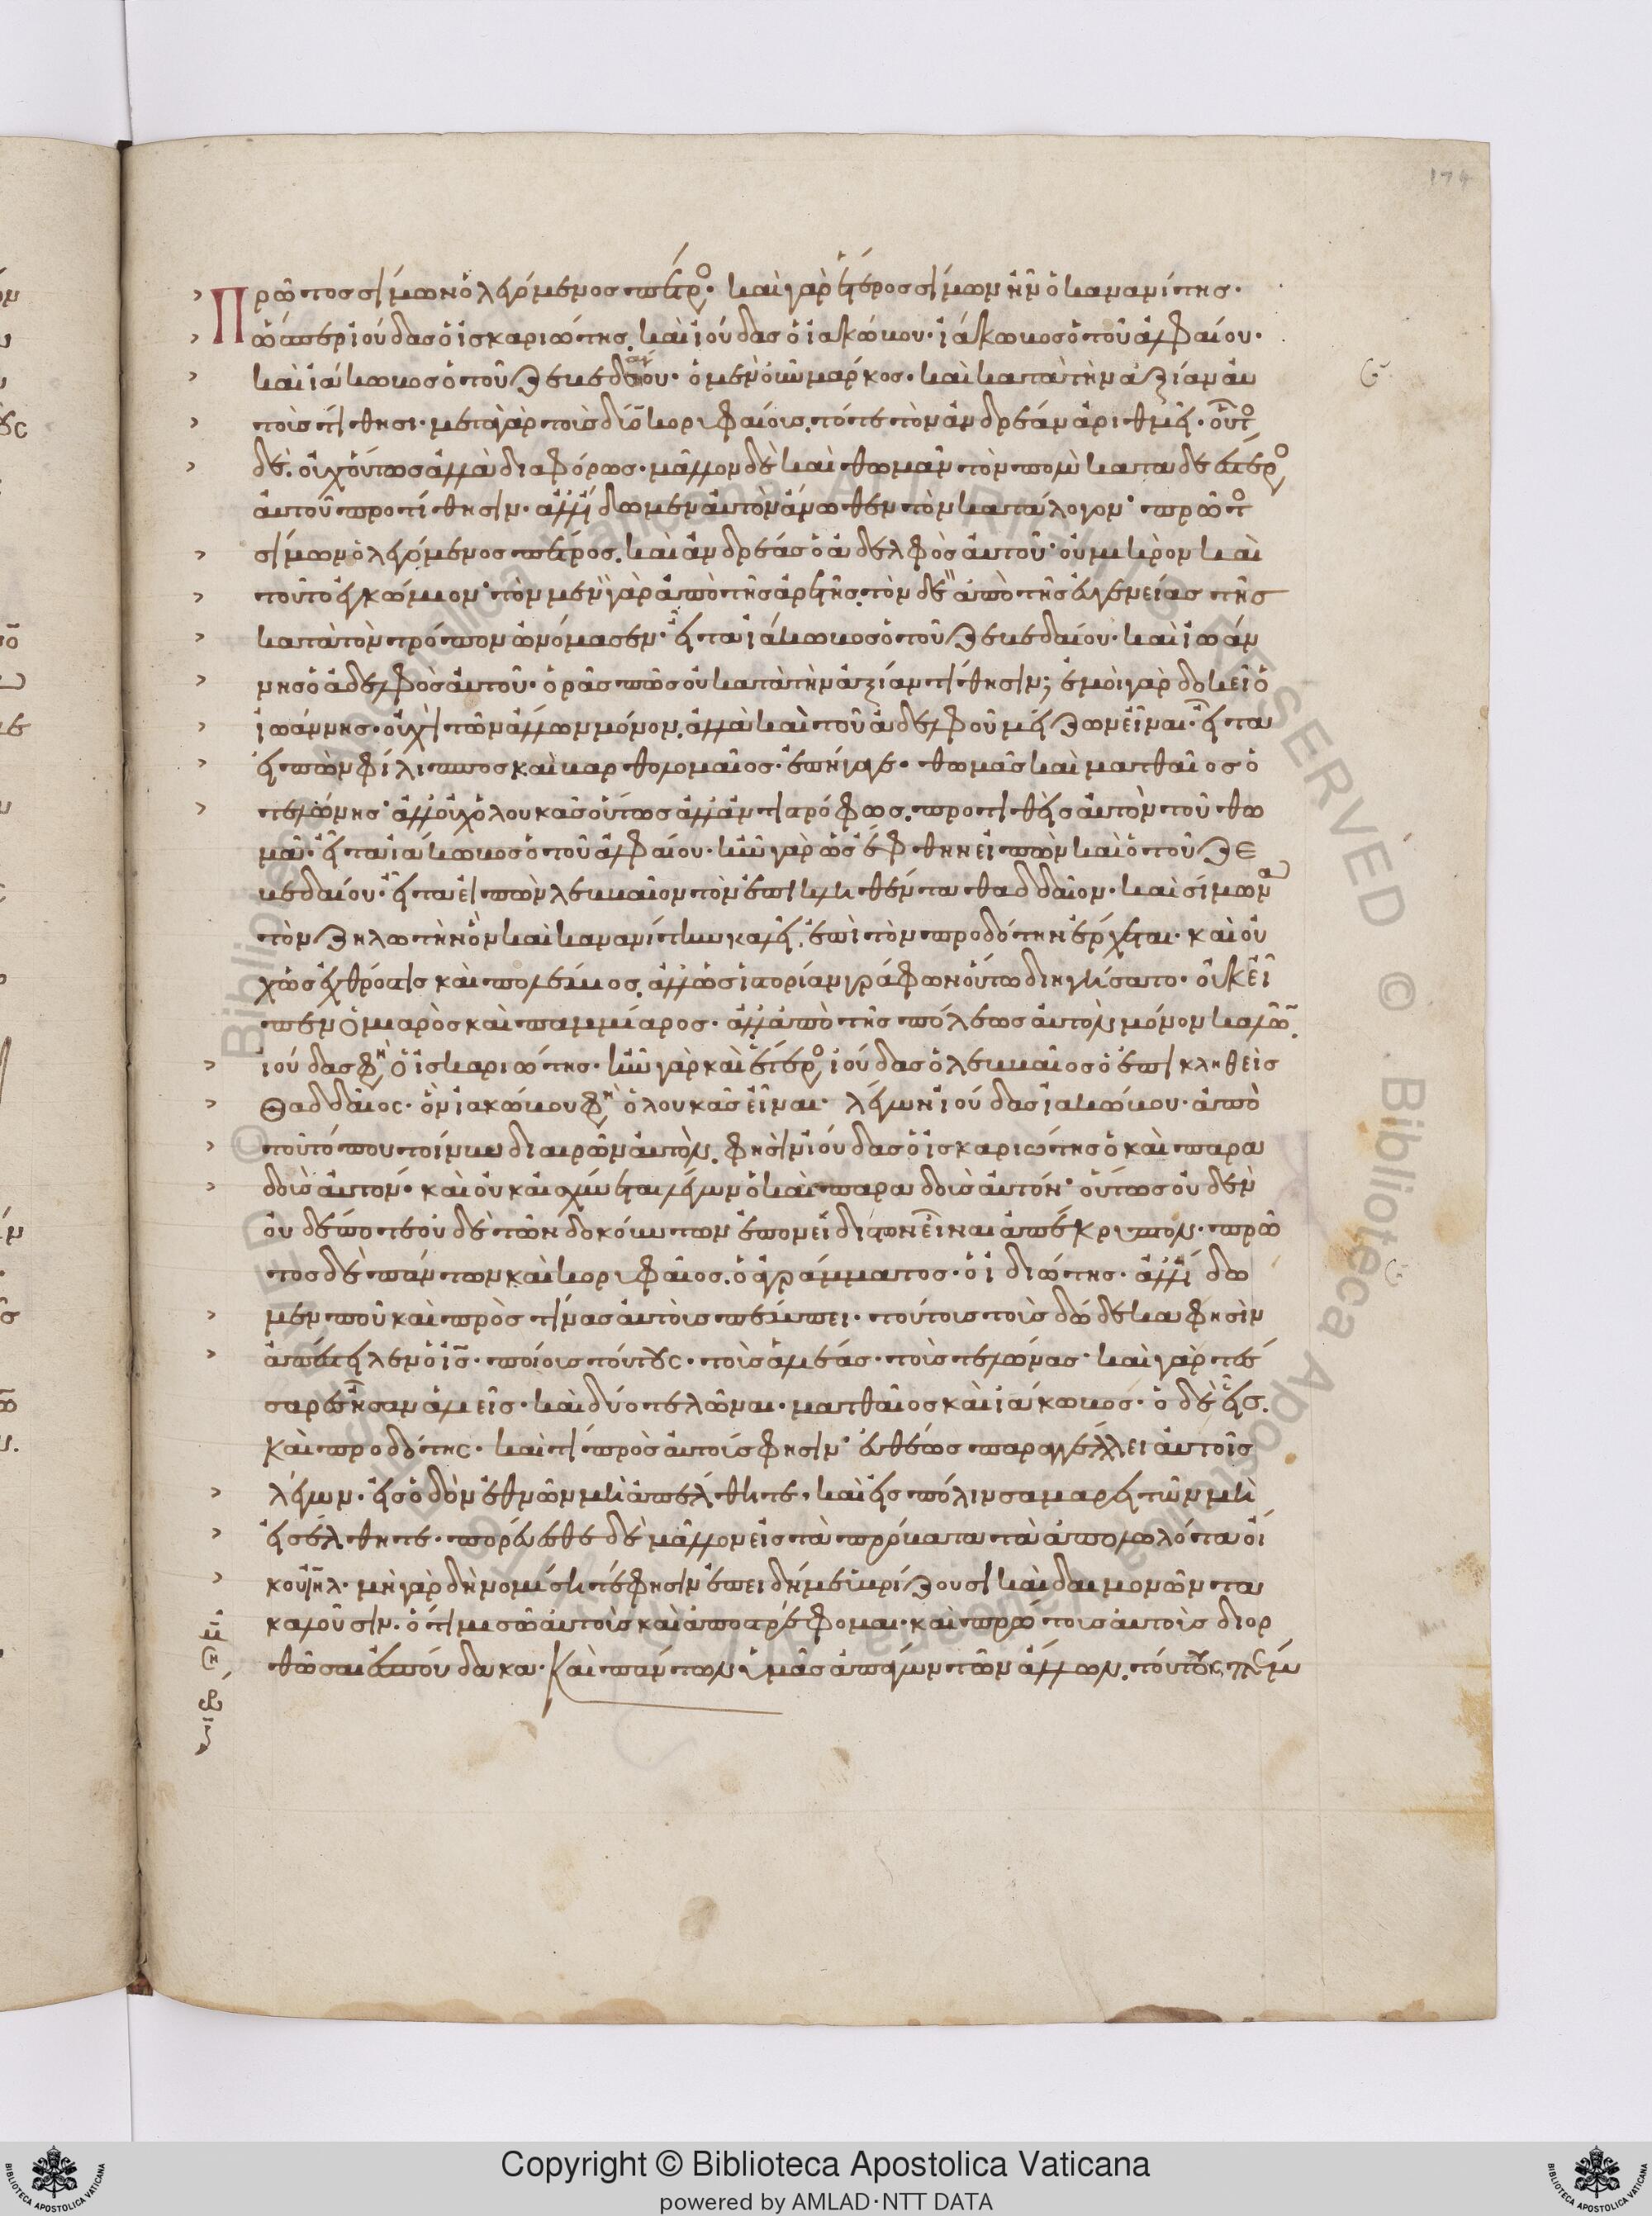 174
Πρῶτος σίμων ὁ λεγόμενος πέτρο· καὶ γὰρ ἕτερος σίμων ἦν ὁ κανανίτης·
ὥσπερ ἰούδας ὁ ἰσκαριώτης. καὶ ἰούδας ὁ ἰακώβου· ἰάκωβος ὁ τοῦ ἀλφαίου·
καὶ ἰάκωβος ὁ τοῦ ζεβεδαίου· ὁ μὲν οὖν μάρκος· καὶ κατὰ τὴν ἀξίαν αὐ
τοῖς τίθησι· μετὰ γὰρ τοῖς δύο κορυφαίοις, τότε τὸν ἀνδρέαν ἀριθμεῖ· οὗτο
δὲ. οὐχ οὕτως ἀλλὰ διαφόρως· μᾶλλον δὲ καὶ θωμᾶν τὸν πολὺ καταδεέστερο
αὐτοῦ προτίθησιν· ἀλλ' ἴδωμεν αὐτὸν ἄνωθεν τὸν κατάλογον· πρῶτο
σίμων ὁ λεγόμενος πέτρος. καὶ ἀνδρέας ὁ ἀδελφὸς αὐτοῦ· οὐ μικρὸν καὶ
τοῦτο ἐγκώμιον· τὸν μὲν γὰρ ἀπὸ τῆς ἀρετῆς. τὸν δὲ ἀπὸ τῆς εὐγενείας τῆς
κατὰ τὸν τρόπον ὠνόμασεν· εἶτα ἰάκωβος ὁ τοῦ ζεβεδαίου· καὶ ἰωάν
νης ὁ ἀδελφὸς αὐτοῦ· ὁρᾶς πῶς οὐ κατὰ τὴν ἀξίαν τίθησιν; ἐμοὶ γὰρ δοκεῖ ὁ
ἰωάννης· οὐχὶ τῶν ἄλλων μόνον. ἀλλὰ καὶ τοῦ ἀδελφοῦ μείζων εἶναι· εἶτα
εἰπὼν φίλιππος καὶ βαρθολομαῖος· ἐπήγαγε· θωμᾶς καὶ ματθαῖος ὁ
τελώνης· ἀλλ' οὐχ ὁ λουκᾶς οὕτως ἀλλ' ἀντιστρόφως. προτιθεὶς αὐτὸν τοῦ θω
μᾶ· εἶτα ἰάκωβος ὁ τοῦ ἀλφαίου· ἦν γὰρ ὡς ἔφθην εἰπὼν καὶ ὁ τοῦ ζε
βεδαίου· εἶτα εἰπὼν λεββαῖον τὸν ἐπικληθέντα θαδδαῖον· καὶ σίμωνα
τὸν ζηλωτὴν ὃν καὶ κανανίτην καλεῖ. ἐπὶ τὸν προδότην ἔρχεται· καὶ οὐ
χ ὡς ἐχθρός τις καὶ πολέμιος. ἀλλ' ὡς ἱστορίαν γράφων οὕτω διηγήσατο· οὐκ εἶ
πεν ὁ μιαρὸς καὶ παμμίαρος· ἀλλ' ἀπὸ τῆς πόλεως αὐτὸν μόνον καλῶν.
ἰούδας φη ὁ ἰσκαριώτης· ἦν γὰρ καὶ ἕτερο ἰούδας ὁ λεββαῖος ὁ ἐπικληθεὶς
Θαδδαῖος· ὃν ἰακώβου φη ὁ λουκᾶς εἶναι· λέγων ἰούδας ἰακώβου· ἀπὸ
τούτου τοίνυν διαιρῶν αὐτὸν. φησὶν ἰούδας ὁ ἰσκαριώτης ὁ καὶ παρα
δοὺς αὐτόν· καὶ οὐκ αἰσχύνεται λέγων ὁ καὶ παραδοὺς αὐτόν· οὕτως οὐδὲν
οὐδέποτε οὐδὲ τῶν δοκούντων ἐπονειδίστων εἶναι ἀπέκρυπτον· πρῶ
τος δὲ πάντων καὶ κορυφαῖος. ὁ ἀγράμματος· ὁ ἰδιώτης· ἀλλ' ἴδω
μεν ποῦ καὶ πρὸς τίνας αὐτοὺς πέμπει· τούτους τοὺς δώδεκα φησὶν
ἀπέστειλεν ὁ ις· ποίους τούτους· τοὺς ἁλιέας· τοὺς τελώνας· καὶ γὰρ τέσ
σαρες ἦσαν ἁλιεῖς· καὶ δύο τελῶναι· ματθαῖος καὶ ἰάκωβος· ὁ δὲ εἷς.
καὶ προδότης· καὶ τί πρὸς αὐτούς φησιν· εὐθέως παραγγέλλει αὐτοῖς
λέγων· εἰς ὁδὸν ἐθνῶν μὴ ἀπέλθητε, καὶ εἰς πόλιν σαμαρειτῶν μὴ
εἰσέλθητε· πορεύεσθε δὲ μᾶλλον εἰς τὰ πρόβατα τὰ ἀπολωλότα οἴ
κου ιηλ· μὴ γὰρ δὴ νομίσητέ φησιν ἐπειδή με ὑβρίζουσι καὶ δαιμονῶντα
καλοῦσιν. ὅτι μισῶ αὐτοὺς καὶ ἀποστρέφομαι· καὶ πρώτους αὐτοὺς διορ
θῶσαι ἐσπούδακα· καὶ πάντων ὑμᾶς ἀπάγων τῶν ἄλλων. τούτοις πέμ